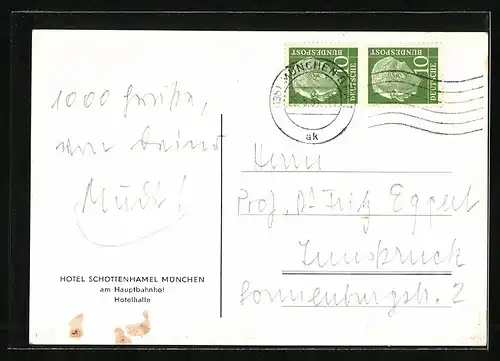 1000 Grüße,
von Deiner
Mudi!
HOTEL SCHOTTENHAMEL MÜNCHEN
am Hauptbahnhof
Hotelhalle
10 DEUTSCHE BUNDESPOST
10 DEUTSCHE BUNDESPOST
MÜNCHEN
ak
Herrn
Prof. Dr Fritz Eggert
Innsbruck
Sonnenburgstr. 2